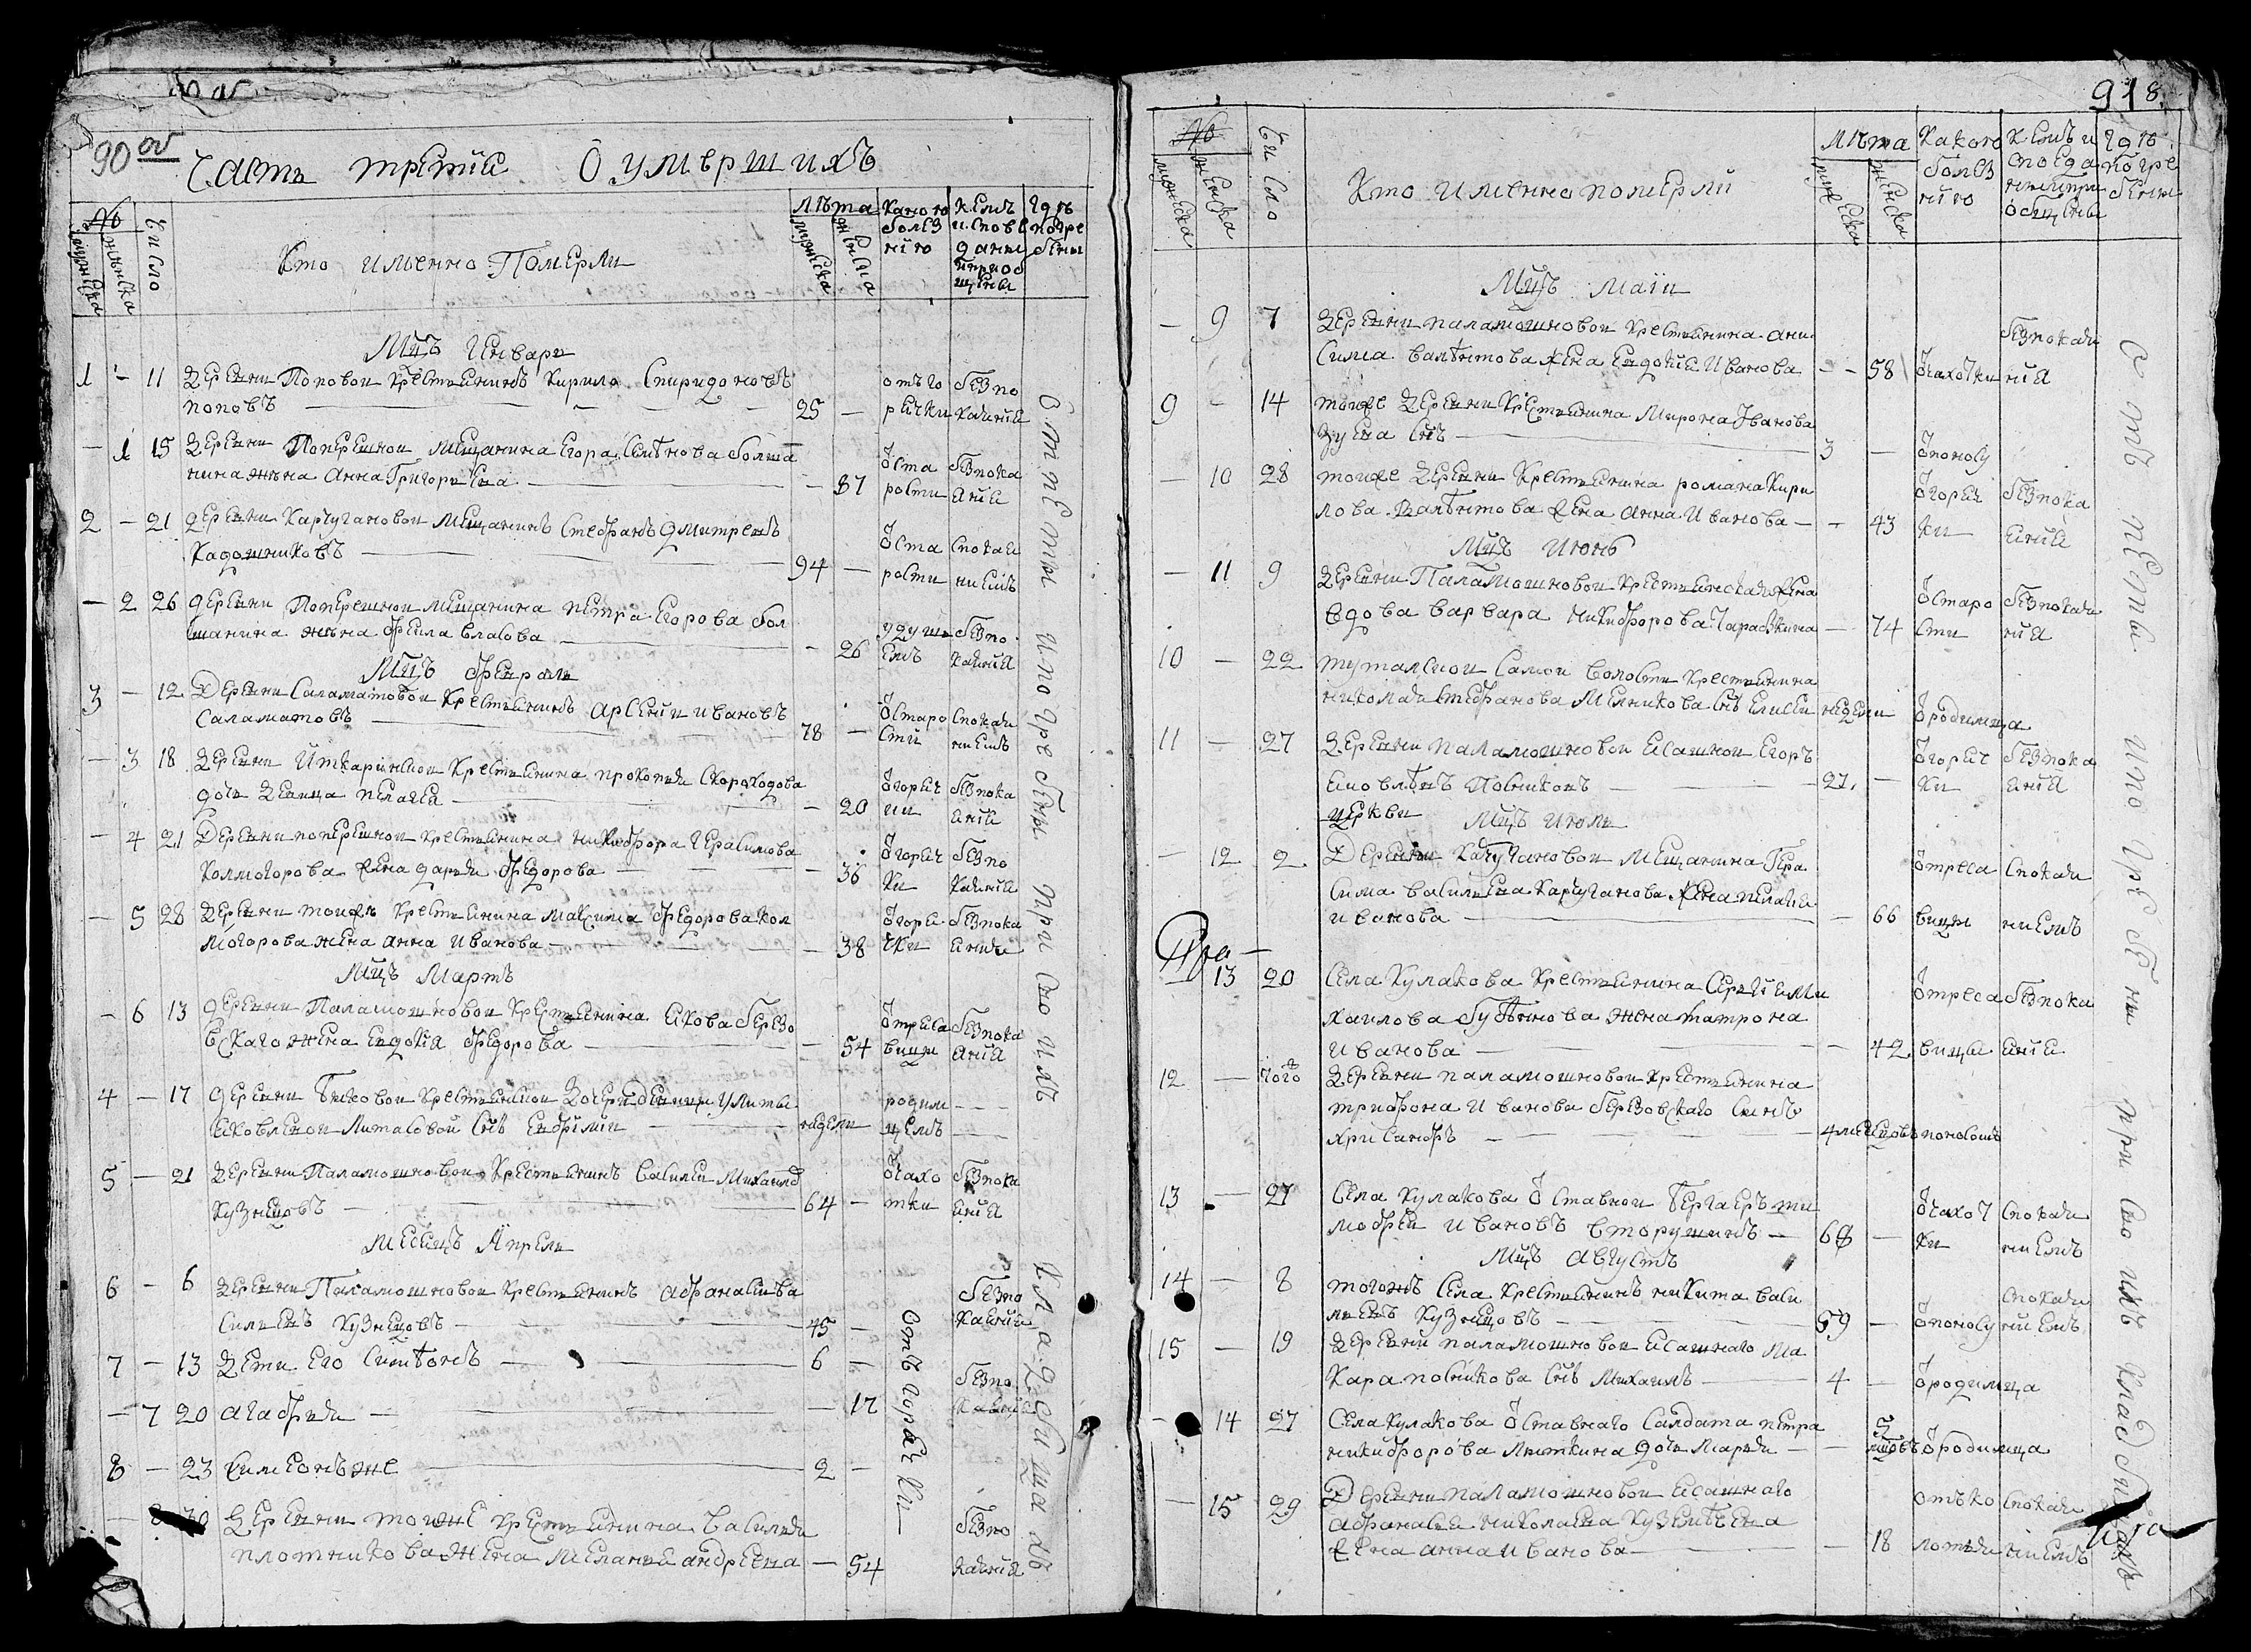 90 об
Часть третия О умершихъ
№ Число Кто имянно Померли лѣта Какою болезнию Кемъ исповеданы и приобщены Где погребены
мужеска женска
Мцъ Генварь
1 - 11 Деревни Поповои крестьянинъ Кирило Спиридоновъ
поповъ 25 - отъ горячки без покаяния
- 1 15 Деревни Поперешнои мещанина Егора Болша
нина жена Анна Григорьева - 87 от старости без покаяния
2 - 21 деревни Каргугановои мещанинъ Стефанъ Дмитревъ
Кадошниковъ 94 - от старости с покаяниемъ
- 2 26 деревни Поперешнои мещанина Петра Егорова Бол
шанина жена Фекла Власова - 26 удушьемъ без покаяния
Мцъ Февраль
3 - 12 Деревни Саламатовои крестьянинъ Арсении Ивановъ
Саламатовъ 78 - от старости с покаяниемъ
- 3 18 Деревни крестьянина Прокопья Скороходова
дочь девица Пелагея - 20 от горячки без покаяния
- 4 21 Деревни поперешнои крестьянина Никифора Герасимова
Колмогорова жена Дарья Федорова - 36 от горячки без покаяния
- 5 28 Деревни тоижъ крестьянина Максима Федорова Кол
могорова жена Анна Иванова - 38 от горячки без покаяния
Мцъ Мартъ
- 6 13 деревни Паламошновои крестьянина Якова Березо
вскаго жена Евдокия Федорова - 54 от трясавицы без покаяния
4 - 17 деревни крестьянскои вдовы Улиты
Яковлевои сынъ Ефимии недели родимцемъ
5 - 21 Деревни Паламошновои крестьянинъ Василеи Михаиловъ
Кузнецовъ 64 - от чахотки без покаяния
Месецъ Апрель
6 - 6 Деревни Паламошновои крестьянинъ Афанасеи Ва
сильевъ Кузнецовъ 45 - без покаяния
7 - 13 Дети его Симионъ 6 -
- 7 20 Агафья - 17 без покаяния
8 - 23 Симеонъ же 2 -
- 8 30 Деревни тоиже крестьянина Василья
плотникова жена Меланья Андреева - 54 без покаяния
Отъ горячки
Отпеты и погребены при своихъ кладбищахъ
918
№ Число Кто имянно померли лѣта Какою болезнию Кемъ исповеданы и приобщены Где погребены
мужеска женска
Мцъ Маии
- 9 7 Деревни паламошновои крестьянина Ани
сима Валѣнтова жена Евдокия Иванова - 58 от чахотки без покаяния
9 - 14 тоиже деревни крестьянина Мирона Иванова
Зуева сынъ 3 - от поносу
- 10 28 тоиже деревни крестьянина романа Кири
лова Валѣнтова жена Анна Иванова - 43 от горячки без покаяния
Мцъ Июнь
- 11 9 Деревни Паламошновои крестьянская жена
вдова Варвара Никифорова - 74 от старости без покаяния
10 - 22 тутальскои самои волости крестьянина
николая Стефанова Мелникова сынъ Елисеи недели от родимца
11 - 27 Деревни паламошновои ясашнои Егоръ
Яковлѣвъ Посниковъ 27 - от горячки без покаяния
церкви Мцъ Июль
- 12 2 Деревни Каргугановои мещанина Гера
сима Васильева Каргуганова жена пелагия
иванова - 66 от трясавицы с покаяниемъ
- 13 20 Села Кулакова крестьянина Сергия Ми
хаилова жена Матрона
Иванова - 42 от трясавицы без покаяния
12 - того Деревни паламошновои крестьянина
трифона Иванова березовскаго сынъ
Хрисанфъ 4 месецовъ поносомъ
13 - 27 Села Кулакова отставнои Ти
мофеи Ивановъ Вторушинъ 68 - от чахотки с покаяниемъ
Мцъ Августъ
14 - 8 тогожъ села крестьянинъ никита Васи
льевъ Кузнецовъ 59 - от поносу с покаяниемъ
15 - 19 деревни паламошновои ясашнаго Ма
кара посникова сынъ Михаилъ 4 - от родимца
- 14 27 Села Кулакова отставнаго салдата петра
никифорова Лыткина дочь Марья - 5 мцовъ от родимца
- 15 29 Деревни паламошновои ясашнаго
Афанасья Николаева
жена анна Иванова - 18 отъ колотья с покаяниемъ
Отпеты и погребены при своихъ кладбищахъ